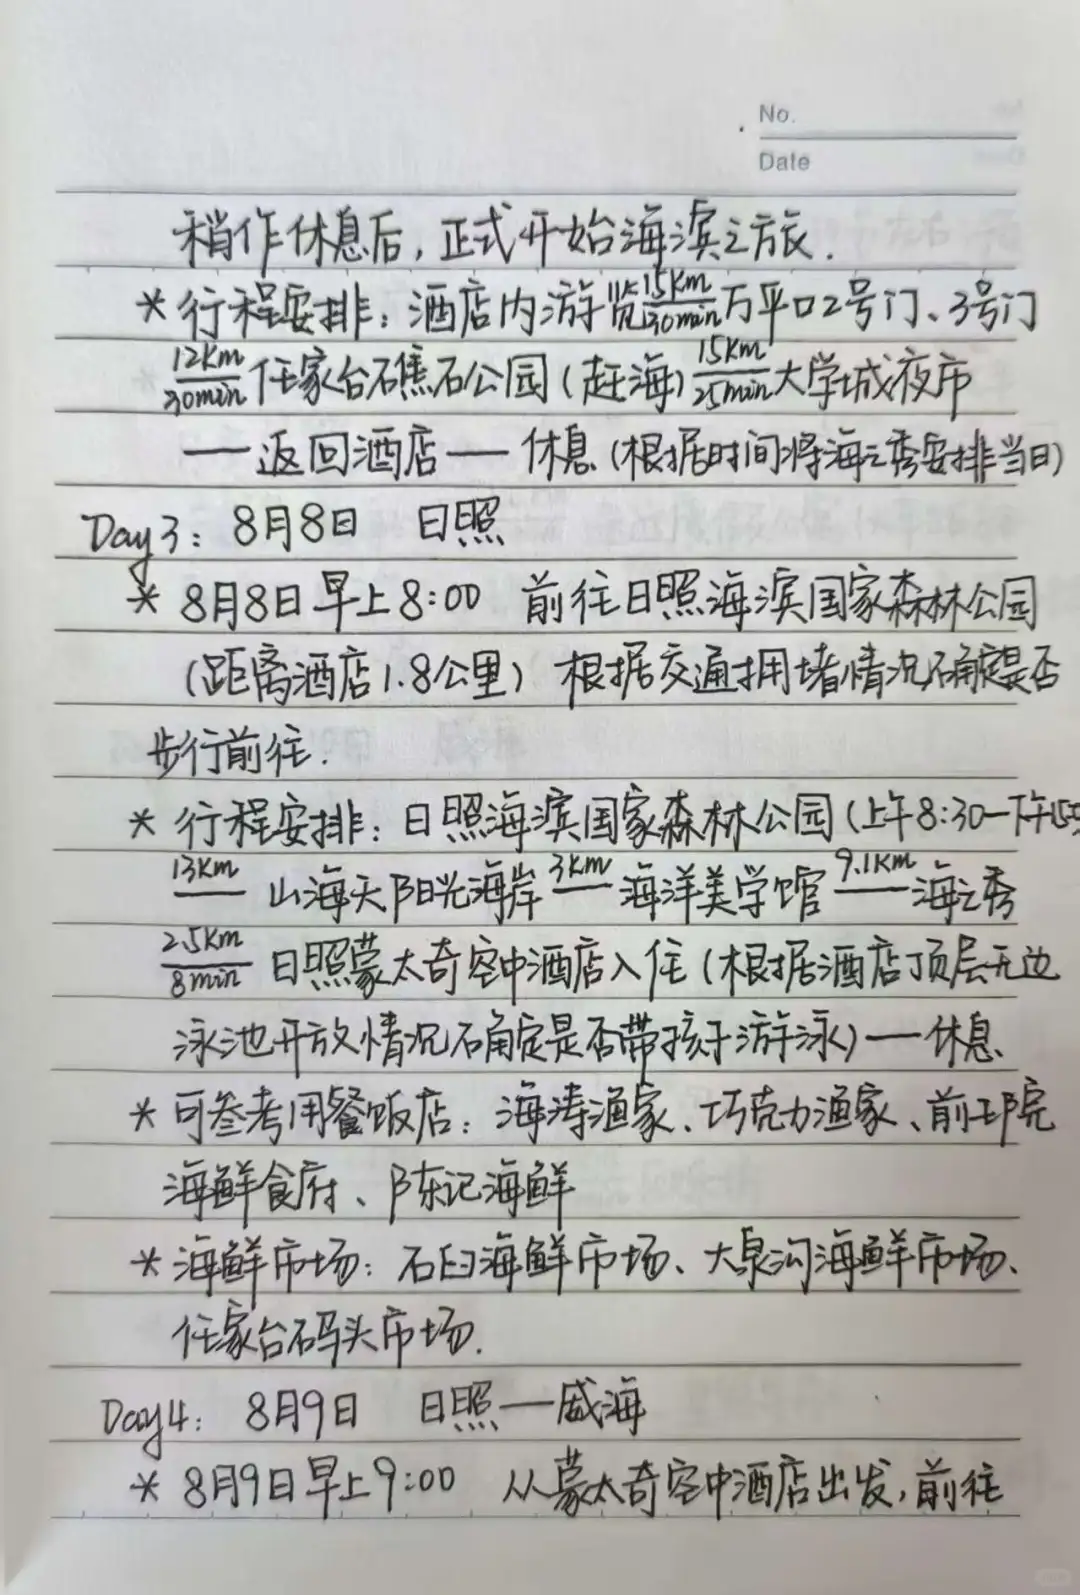 No.
Date
稍作休息后,正式开始海滨之旅.
* 行程安排:酒店内游览 15km/30min 万平口2号门、3号门
12km/30min 任家台礁石公园(赶海) 15km/25min 大学城夜市
——返回酒店——休息(根据时间将海之秀安排当日)
Day3: 8月8日 日照
* 8月8日早上8:00 前往日照海滨国家森林公园
(距离酒店1.8公里) 根据交通拥堵情况确定是否
步行前往.
* 行程安排:日照海滨国家森林公园(上午8:30—下午
13km —— 山海天阳光海岸 3km —— 海洋美学馆 9.1km —— 海之秀
2.5km/8min 日照蒙太奇空中酒店入住(根据酒店顶层无边
泳池开放情况确定是否带孩子游泳)——休息
* 可参考用餐饭店:海涛渔家、巧克力渔家、前邛院
海鲜食府、陈记海鲜
* 海鲜市场:石臼海鲜市场、大泉沟海鲜市场、
任家台码头市场.
Day4: 8月9日 日照——威海
* 8月9日早上9:00 从蒙太奇空中酒店出发,前往